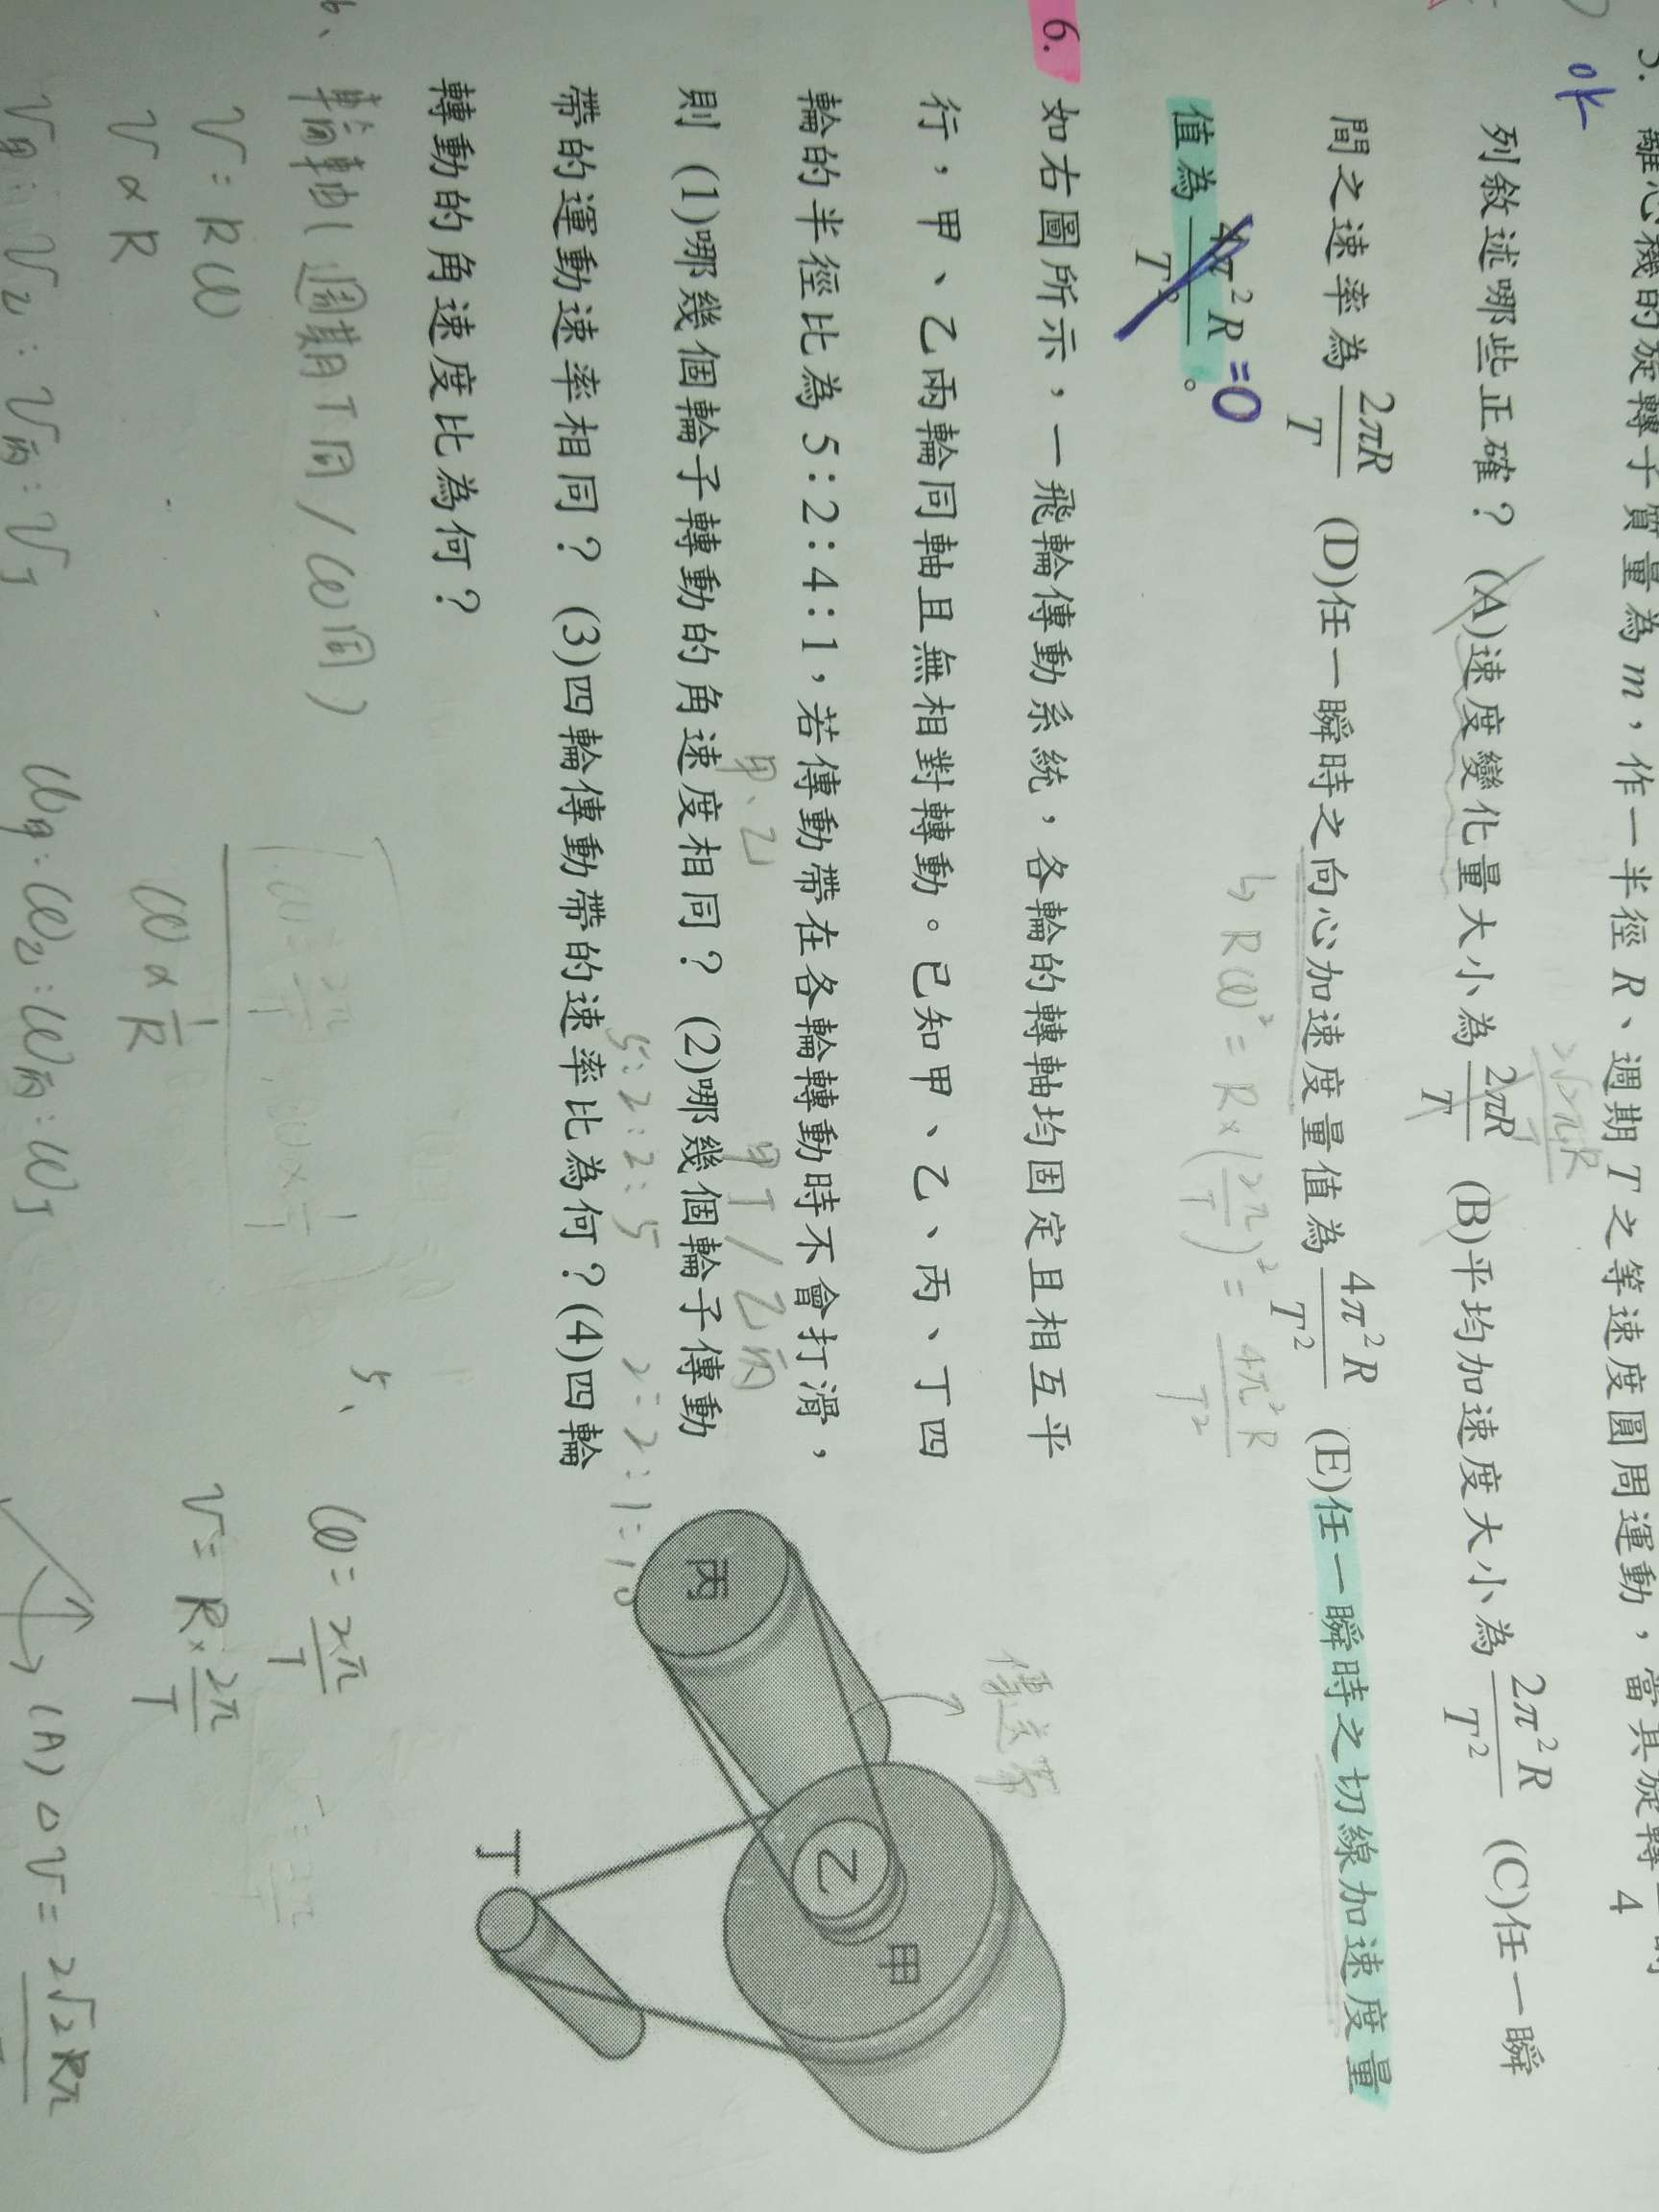 5. 離心機的旋轉子質量為 m,作一半徑 R、週期 T 之等速度圓周運動,當其旋轉
列敘述哪些正確? (A)速度變化量大小為 2πR/T (B)平均加速度大小為 2π²R/T² (C)任一瞬
間之速率為 2πR/T (D)任一瞬時之向心加速度量值為 4π²R/T² (E)任一瞬時之切線加速度量
值為 4π²R/T² 。 =0
↳ Rω² = R×(2π/T)² = 4π²R/T²
6. 如右圖所示,一飛輪傳動系統,各輪的轉軸均固定且相互平
行,甲、乙兩輪同軸且無相對轉動。已知甲、乙、丙、丁四
輪的半徑比為 5:2:4:1,若傳動帶在各輪轉動時不會打滑,
甲、乙 甲丁/乙丙
則 (1)哪幾個輪子轉動的角速度相同? (2)哪幾個輪子傳動
5:2:2:5 2:2:1:10
帶的運動速率相同? (3)四輪傳動帶的速率比為何?(4)四輪
轉動的角速度比為何?
傳送帶
丙
乙
甲
丁
6、
輪軸(週期T同/ω同)
V=Rω
V∝R
ω∝1/R
V甲:V乙:V丙:V丁
ω甲:ω乙:ω丙:ω丁
5、
ω=2π/T
V=R×2π/T
(A) △V=2√2Rπ